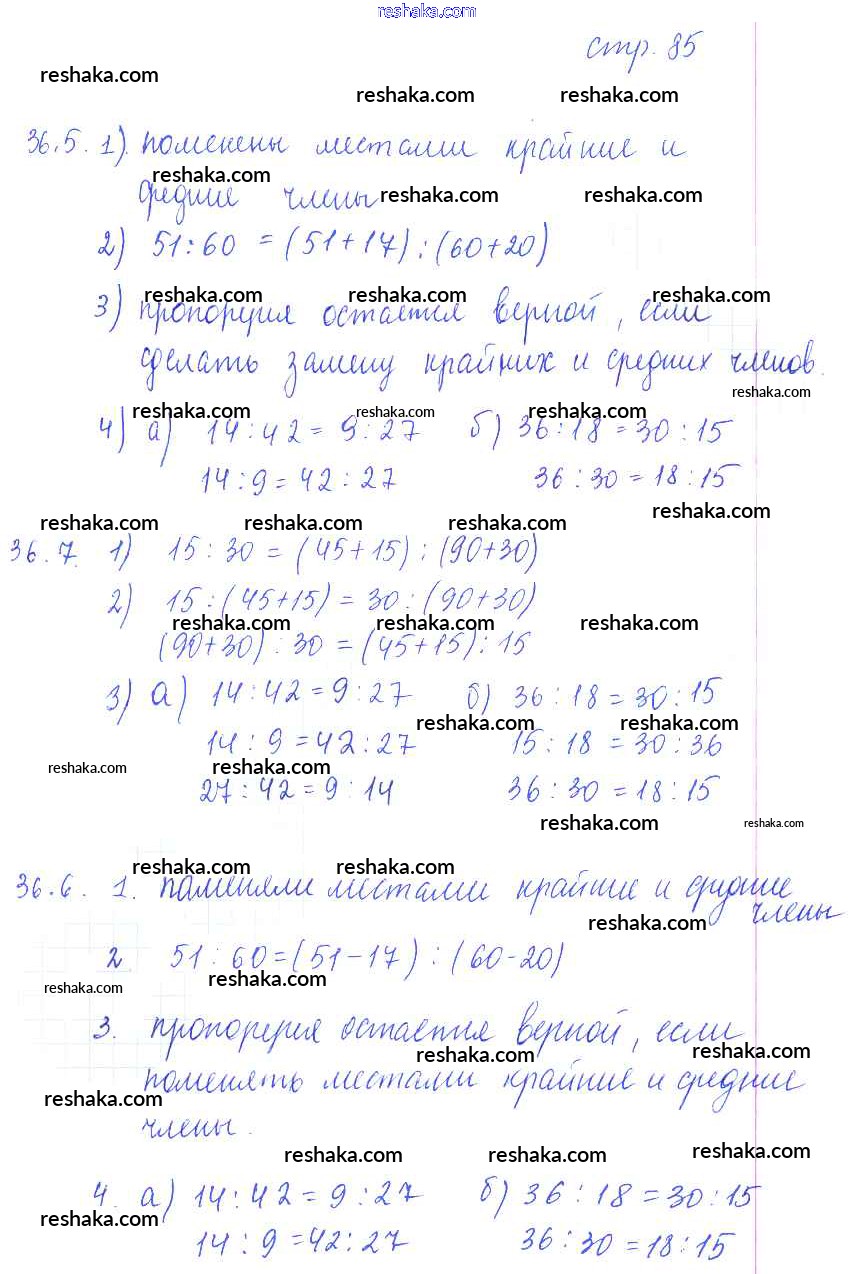 reshaka.com
стр. 85
reshaka.com
reshaka.com reshaka.com
36.5. 1). поменены местами крайние и
reshaka.com
средние члены
reshaka.com reshaka.com
2) 51:60 = (51+17) : (60+20)
reshaka.com reshaka.com reshaka.com
3) пропорция остается верной, если
сделать замену крайних и средних членов.
reshaka.com
reshaka.com reshaka.com reshaka.com
4) а) 14:42 = 9:27 б) 36:18 = 30:15
14:9 = 42:27 36:30 = 18:15
reshaka.com
reshaka.com reshaka.com reshaka.com
36.7. 1) 15:30 = (45+15) : (90+30)
2) 15:(45+15) = 30:(90+30)
reshaka.com reshaka.com reshaka.com
(90+30):30 = (45+15):15
3) а) 14:42 = 9:27 б) 36:18 = 30:15
reshaka.com reshaka.com
14:9 = 42:27 15:18 = 30:36
reshaka.com reshaka.com
27:42 = 9:14 36:30 = 18:15
reshaka.com reshaka.com
reshaka.com reshaka.com
36.6. 1. поменяли местами крайние и средние
члены
reshaka.com
2 51:60 = (51-17) : (60-20)
reshaka.com
reshaka.com
3. пропорция остается верной, если
reshaka.com reshaka.com
поменять местами крайние и средние
reshaka.com
члены.
reshaka.com reshaka.com reshaka.com
4. а) 14:42 = 9:27 б) 36:18 = 30:15
reshaka.com reshaka.com
14:9 = 42:27 36:30 = 18:15